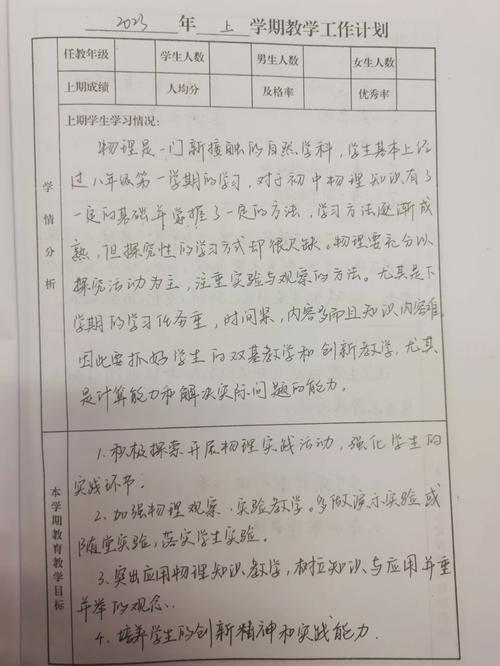 2023 年 上 学期教学工作计划
任教年级 学生人数 男生人数 女生人数
上期成绩 人均分 及格率 优秀率
学情分析
上期学生学习情况:
物理是一门新接触的自然学科，学生基本上经
过八年级第一学期的学习，对于初中物理知识有了
一定的基础并掌握了一定的方法，学习方法逐渐成
熟，但探究性的学习方式却很欠缺。物理要充分以
探究活动为主，注重实验与观察的方法。尤其是下
学期的学习任务重，时间紧，内容多而且知识内容难，
因此要抓好学生的双基教学和创新教学，尤其
是计算能力和解决实际问题的能力。
本学期教育教学目标
1.积极探索开展物理实践活动，强化学生的
实践环节。
2.加强物理观察、实验教学。多做演示实验或
随堂实验，落实学生实验。
3.突出应用物理知识教学，树立知识与应用并重
并举的观念.
4.培养学生的创新精神和实践能力.